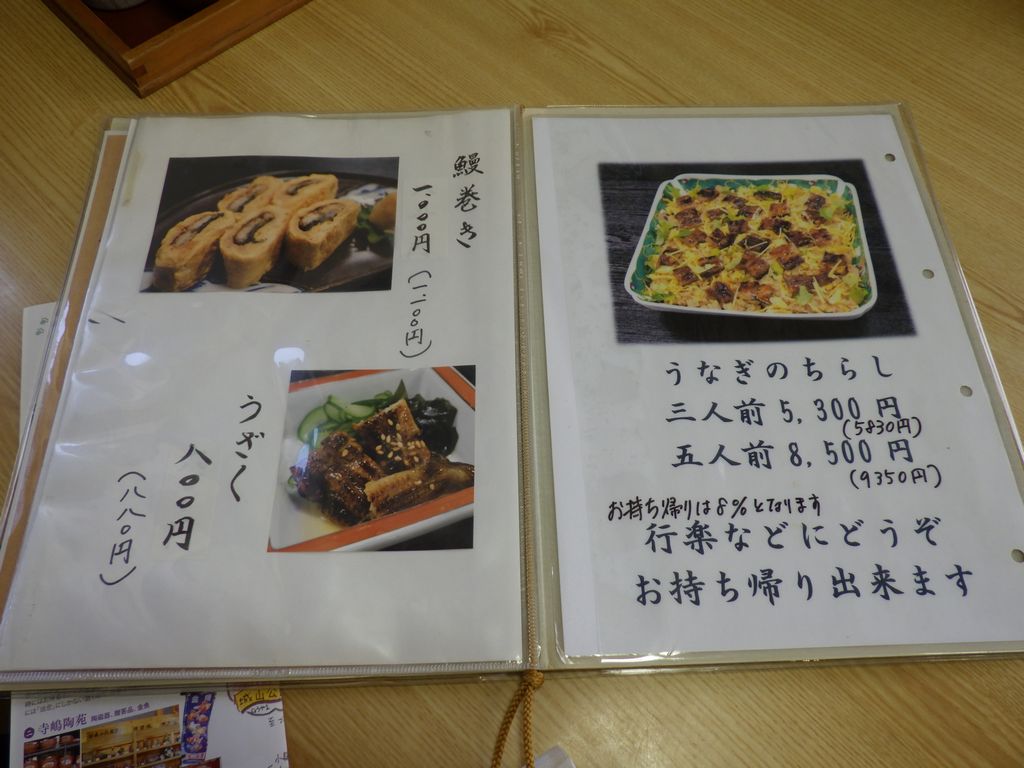 鰻巻き
一、〇〇〇円
(一、一〇〇円)
うざく
八〇〇円
(八八〇円)
うなぎのちらし
三人前 5,300 円
(5830円)
五人前 8,500 円
(9350円)
お持ち帰りは8%となります
行楽などにどうぞ
お持ち帰り出来ます
寺嶋陶苑 陶磁器、贈答品、金魚
城山公